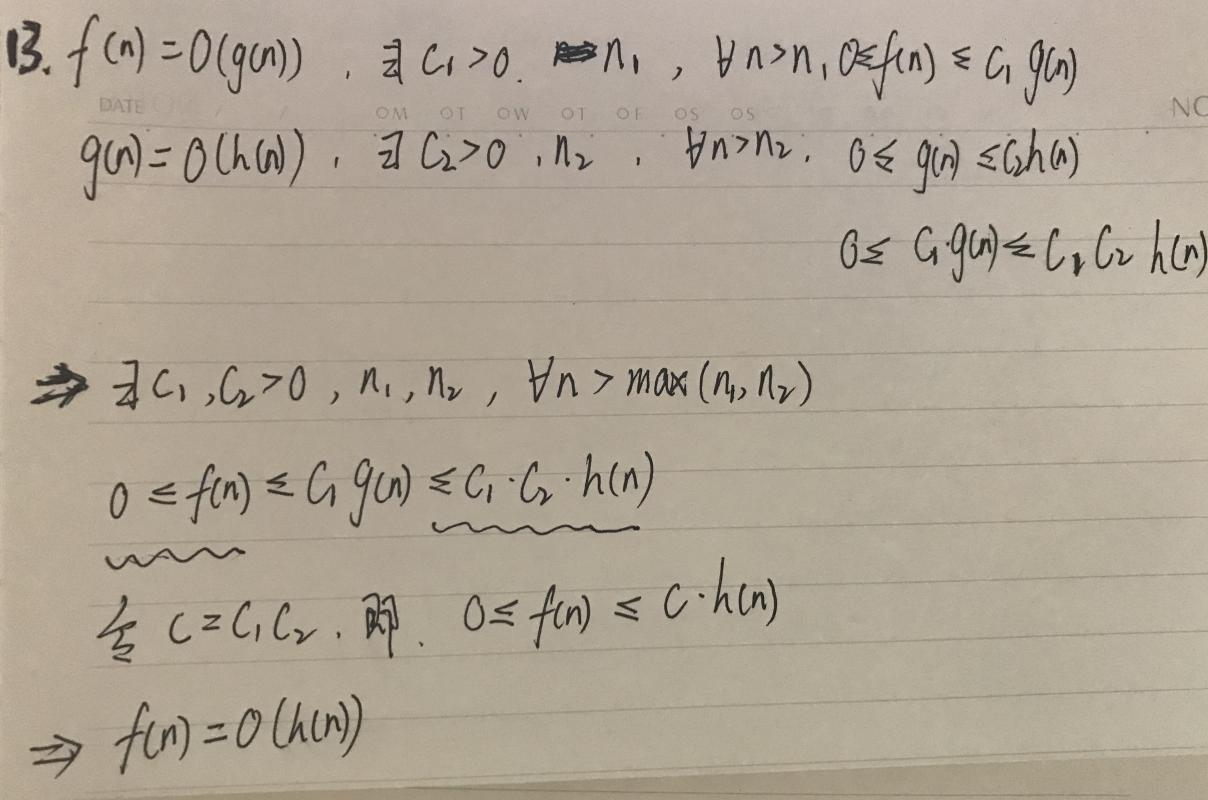 13. f(n) = O(g(n)) , ∃ C₁>0. n₁ , ∀n>n₁ 0≤f(n) ≤ C₁ g(n)
DATE OM OT OW OT OF OS OS NO
g(n) = O(h(n)) , ∃ C₂>0 , n₂ , ∀n>n₂, 0≤ g(n) ≤C₂h(n)
0≤ C₁·g(n) ≤ C₁ C₂ h(n)
⇒ ∃ C₁ , C₂>0 , n₁ , n₂ , ∀n > max(n₁, n₂)
0 ≤ f(n) ≤ C₁ g(n) ≤ C₁ · C₂ · h(n)
令 C = C₁C₂ . 即. 0≤ f(n) ≤ C·h(n)
⇒ f(n) = O(h(n))